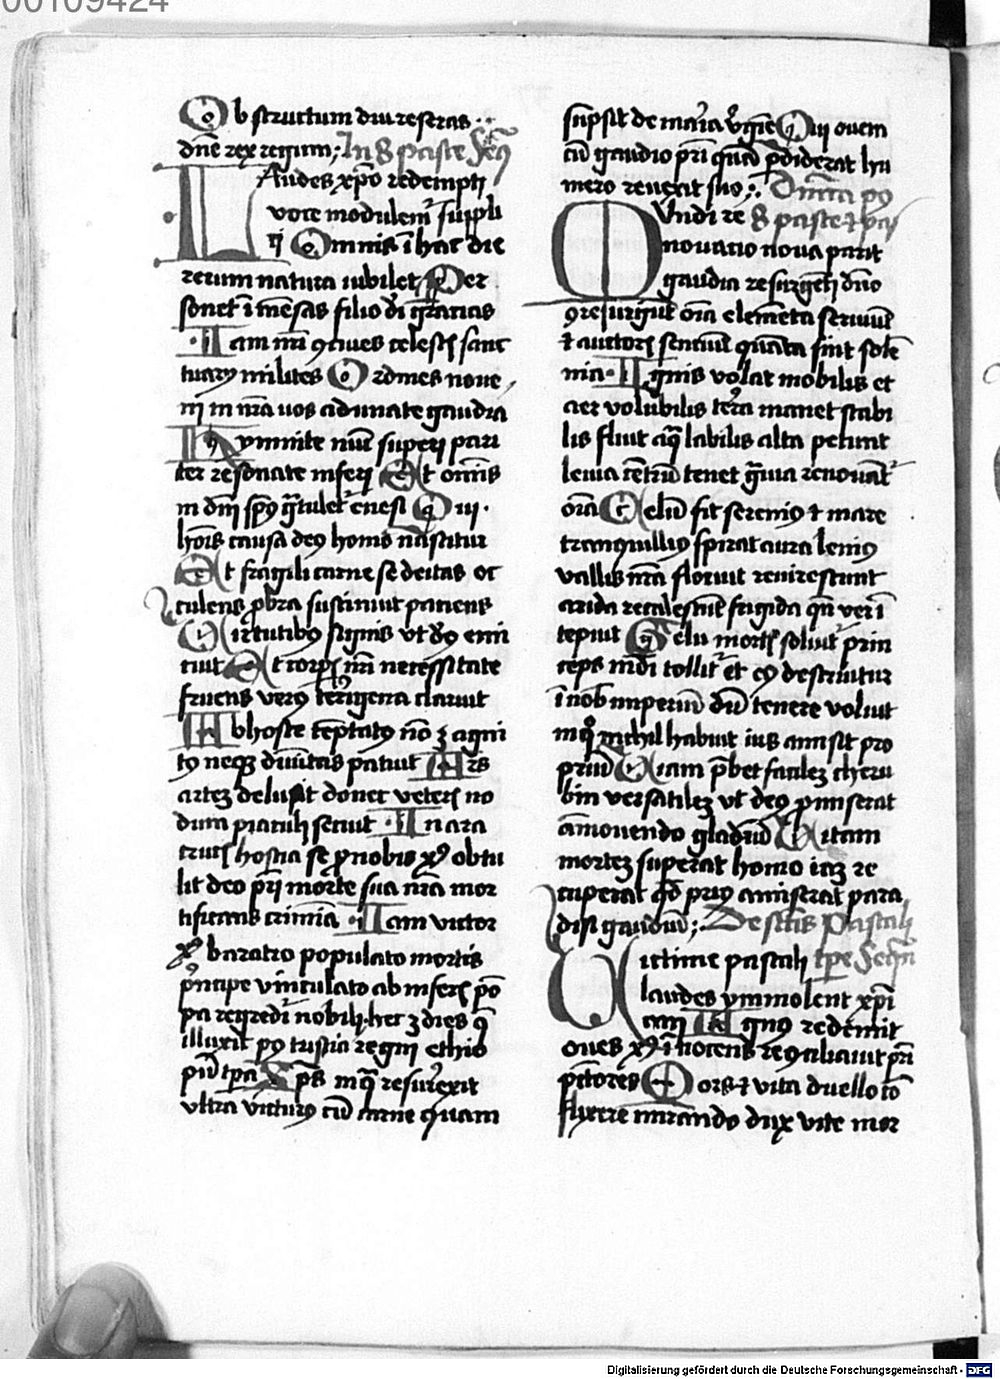 00109424
Ob structum diu reseras
dn̄e rex regum; In 8 pasce Seq̄
Laudes xp̄o redempti
voce modulem̄ suppli
ci Omnis ī hac die
rerum natura iubilet Per
sonet īmēsas filio dei gr̄arias
Iam nr̄i ꝯciues celestꝭ sanc
tuarꝝ milites Ordines noue
ni in nr̄a uos adunate gaudia
Hymnite nūc superi pari
ter resonate inferi Et omīs
in dn̄i sp̄s gr̄tulet᷑ enesi Qui
hoīs causa deꝰ homo nascitur
Et fragili carne se deitas oc
culens ꝓbra sustinuit paciens
Virtutibꝰ signis vt dꝰ emi
cuit Et corpꝭ nr̄i necessitate
fruens verꝰ terigena claruit
Ab hoste tēptatꝰ nō ꝫ agni
tꝰ neqꝫ diuītas patuit Ars
artez delusit donec veterꝭ no
dum piaculi secuit In ara
crucꝭ hostia se ꝓ nobis xp̄s obtu
lit deo pr̄i morte sua nr̄a mor
tificans crimīa Iam victor
xp̄s baratro populato mortis
pͥncipe vinculato ab inferꝭ pō
pa regredi᷑ nobili hec ꝫ dies q̄
illuxit pꝰ tristia regni ethio
pū tp̄a Xp̄s in q̄ resurexit
vltra victurꝰ cū carne quam
supsit de maria v̊gīe Qui ouem
cū gaudio pr̄i quā ꝑdiderat hu
mero reuexit suo; Om̄ia pꝰ
Mundi re 8 pasce ⁊ pas
nouacio noua parit
gaudia resurgēti dn̄o
ꝯresurgūt om̄ia elemēta seruiūt
⁊ auctorꝭ senciūt quāta sint solē
nia Ignis volat mobilis et
aer volubilis terra manet stabi
lis fluit aq̄ labilis alta petunt
leuia cētrū tenet gͣuia renouāt᷑
om̄ia Celū fit sereniꝰ ⁊ mare
tranquilliꝰ spirat aura leniꝰ
vallis nr̄a floruit reuirescunt
arida recalescūt frigida qn̄ ver ī
tepuit Gelu mortꝭ soluit᷑ prin
ceps mūdi tollit᷑ et eꝰ destruitur
ī nob̄ imperiū dū tenere voluit
in qͦ nichil habuit ius amisit pro
priū Viam p̄bet facilez cheru
bin versatilez vt deꝰ ꝓmiserat
amouendo gladiū Vitam
mortez superat homo iaz re
cuperat qd̄ priꝰ amiserat para
disi gaudiū; De sctīs Pascali
Victime pascali tp̄e Seq̄n
laudes ymmolent xp̄i
ani Agnꝰ redemit
oues xp̄s īnocens recōciliauit pr̄i
pctōres Mors ⁊ vita duello cō
flixere mirando dux vite mor
Digitalisierung gefördert durch die Deutsche Forschungsgemeinschaft - DFG